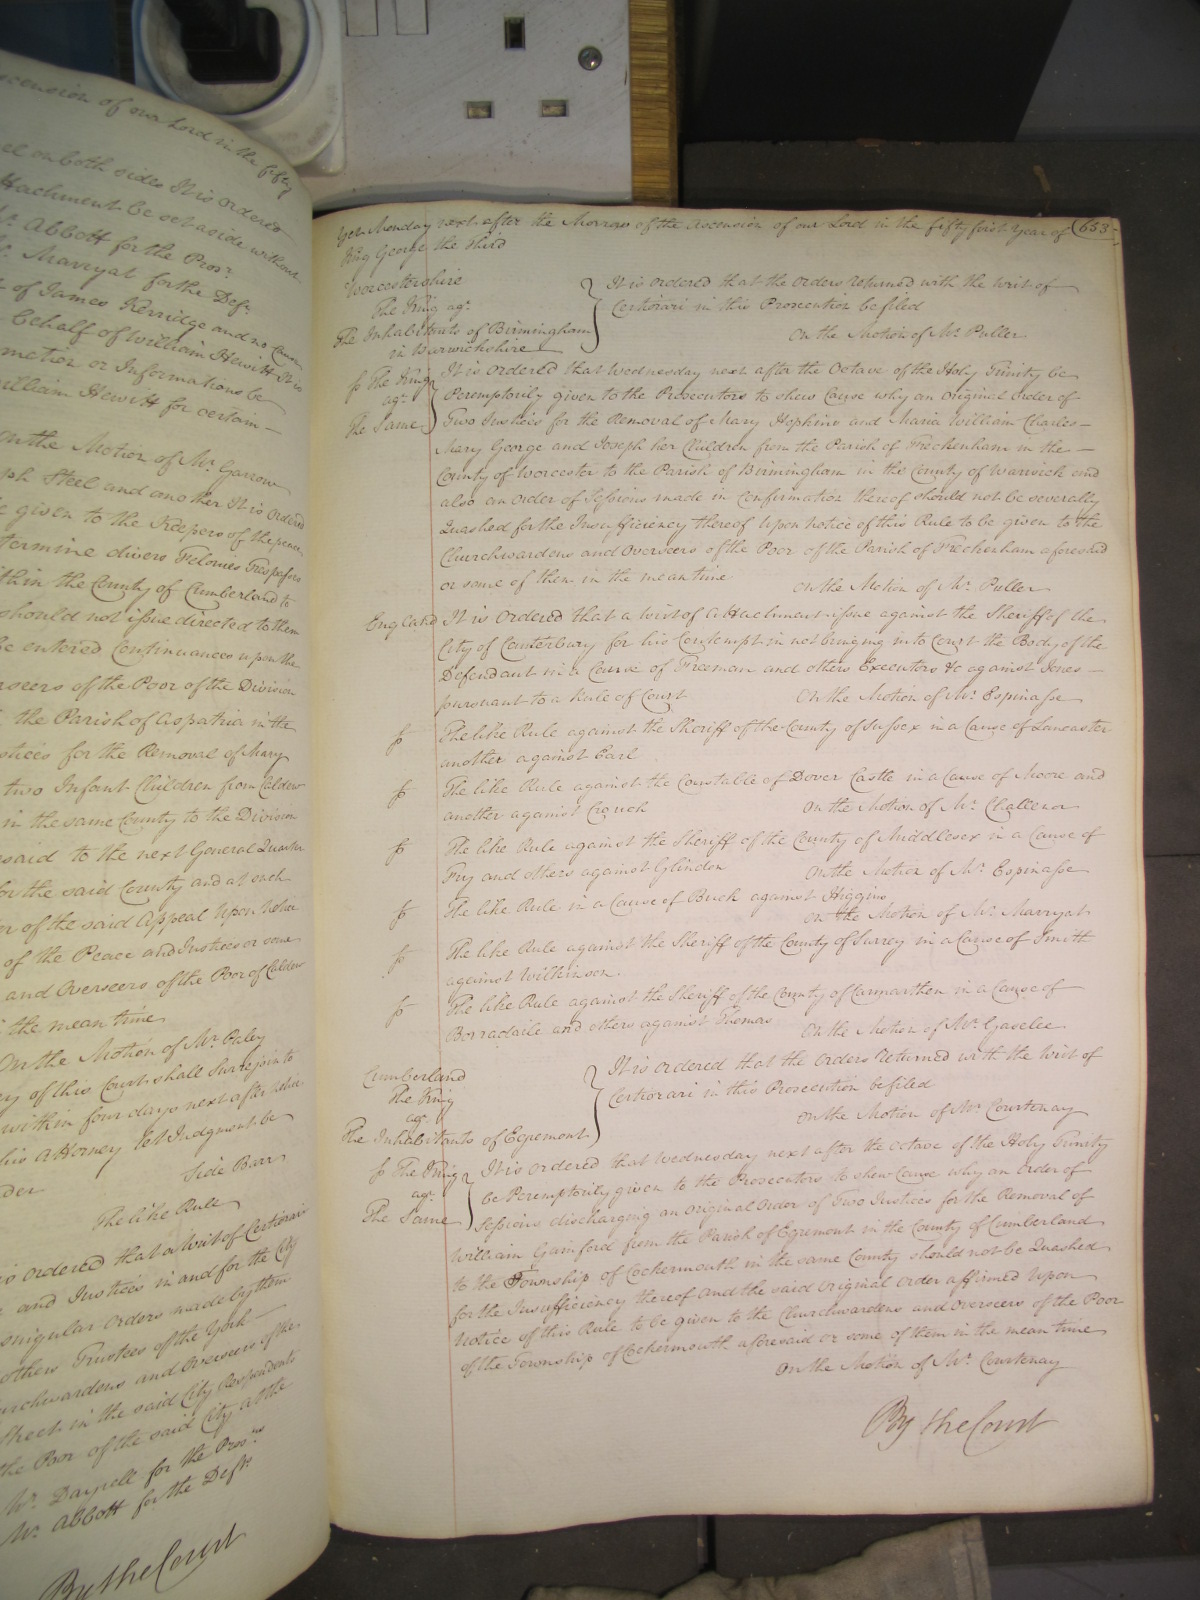 ascension of our Lord in the fifty
el on both sides It is ordered
ttachment be set aside without
Mr. Abbott for the Prosr.
Mr. Marryat for the Deft.
of James Kerridge and no Cause
behalf of William Hewitt It is
mation or Informations be
William Hewitt for certain
On the Motion of Mr. Garrow
ph Steel and another It is Ordered
given to the Keepers of the peace
termine divers Felonies Trespasses
thin the County of Cumberland to
should not issue directed to them
be entered Continuances upon the
rseers of the Poor of the Division
the Parish of Aspatria in the
stices for the Removal of Mary
two Infant Children from Caldew
in the same County to the Division
said to the next General Quarter
for the said County and at such
r of the said Appeal Upon Notice
of the Peace and Justices or some
and Overseers of the Poor of Caldew
the mean time
On the Motion of Mr. Raley
ry of this Court shall Surrejoin to
within four days next after
his Attorney let Judgment be
der Side Barr
The like Rule
is ordered that a Writ of Certiorari
and Justices in and for the City
singular Orders made by them
others Trustees of the York
urchwardens and Overseers of the
Street in the said City Respondents
the Poor of the said City at the
Mr. Darnell for the Prosrs.
Mr. Abbott for the Defts.
By the Court
Yet Monday next after the Morrow of the Ascension of our Lord in the fifty first Year of 653
King George the Third
Worcestershire
The King agt.
The Inhabitants of Birmingham
in Warwickshire
It is ordered that the Orders returned with the Writ of
Certiorari in this Prosecution be filed
On the Motion of Mr. Puller
The King
agt.
The Same
It is ordered that Wednesday next after the Octave of the Holy Trinity be
Peremptorily given to the Prosecutors to shew Cause why an Original Order of
Two Justices for the Removal of Mary Hopkins and Maria William Charles
Mary George and Joseph her Children from the Parish of Freckenham in the
County of Worcester to the Parish of Birmingham in the County of Warwick and
also an Order of Sessions made in Confirmation thereof should not be severally
Quashed for the Insufficiency thereof Upon Notice of this Rule to be given to the
Churchwardens and Overseers of the Poor of the Parish of Freckenham aforesaid
or some of them in the mean time
On the Motion of Mr. Puller
England It is Ordered that a writ of Attachment issue against the Sheriff of the
City of Canterbury for his Contempt in not bringing into Court the Body of the
Defendant in a Cause of Freeman and others Executors &c against Jones
pursuant to a Rule of Court On the Motion of Mr. Espinasse
The like Rule against the Sheriff of the County of Sussex in a Cause of Lancaster
another against Earl
The like Rule against the Constable of Dover Castle in a Cause of Moore and
another against Crouch On the Motion of Mr. Challenor
The like Rule against the Sheriff of the County of Middlesex in a Cause of
Fry and others against Glindon On the Motion of Mr. Espinasse
The like Rule in a Cause of Buck against Higgins
On the Motion of Mr. Marryat
The like Rule against the Sheriff of the County of Surrey in a Cause of Smith
against Wilkinson.
The like Rule against the Sheriff of the County of Carmarthen in a Cause of
Borradaile and others against Thomas On the Motion of Mr. Gaselee
Cumberland
The King
agt.
The Inhabitants of Egremont
It is ordered that the Orders returned with the Writ of
Certiorari in this Prosecution be filed
On the Motion of Mr. Courtenay
The King
agt.
The Same
It is ordered that Wednesday next after the Octave of the Holy Trinity
be Peremptorily given to the Prosecutors to shew Cause why an Order of
Sessions discharging an Original Order of Two Justices for the Removal of
William Gainford from the Parish of Egremont in the County of Cumberland
to the Township of Cockermouth in the same County should not be Quashed
for the Insufficiency thereof and the said Original Order affirmed Upon
Notice of this Rule to be given to the Churchwardens and Overseers of the Poor
of the Township of Cockermouth aforesaid or some of them in the mean time
On the Motion of Mr. Courtenay
By the Court